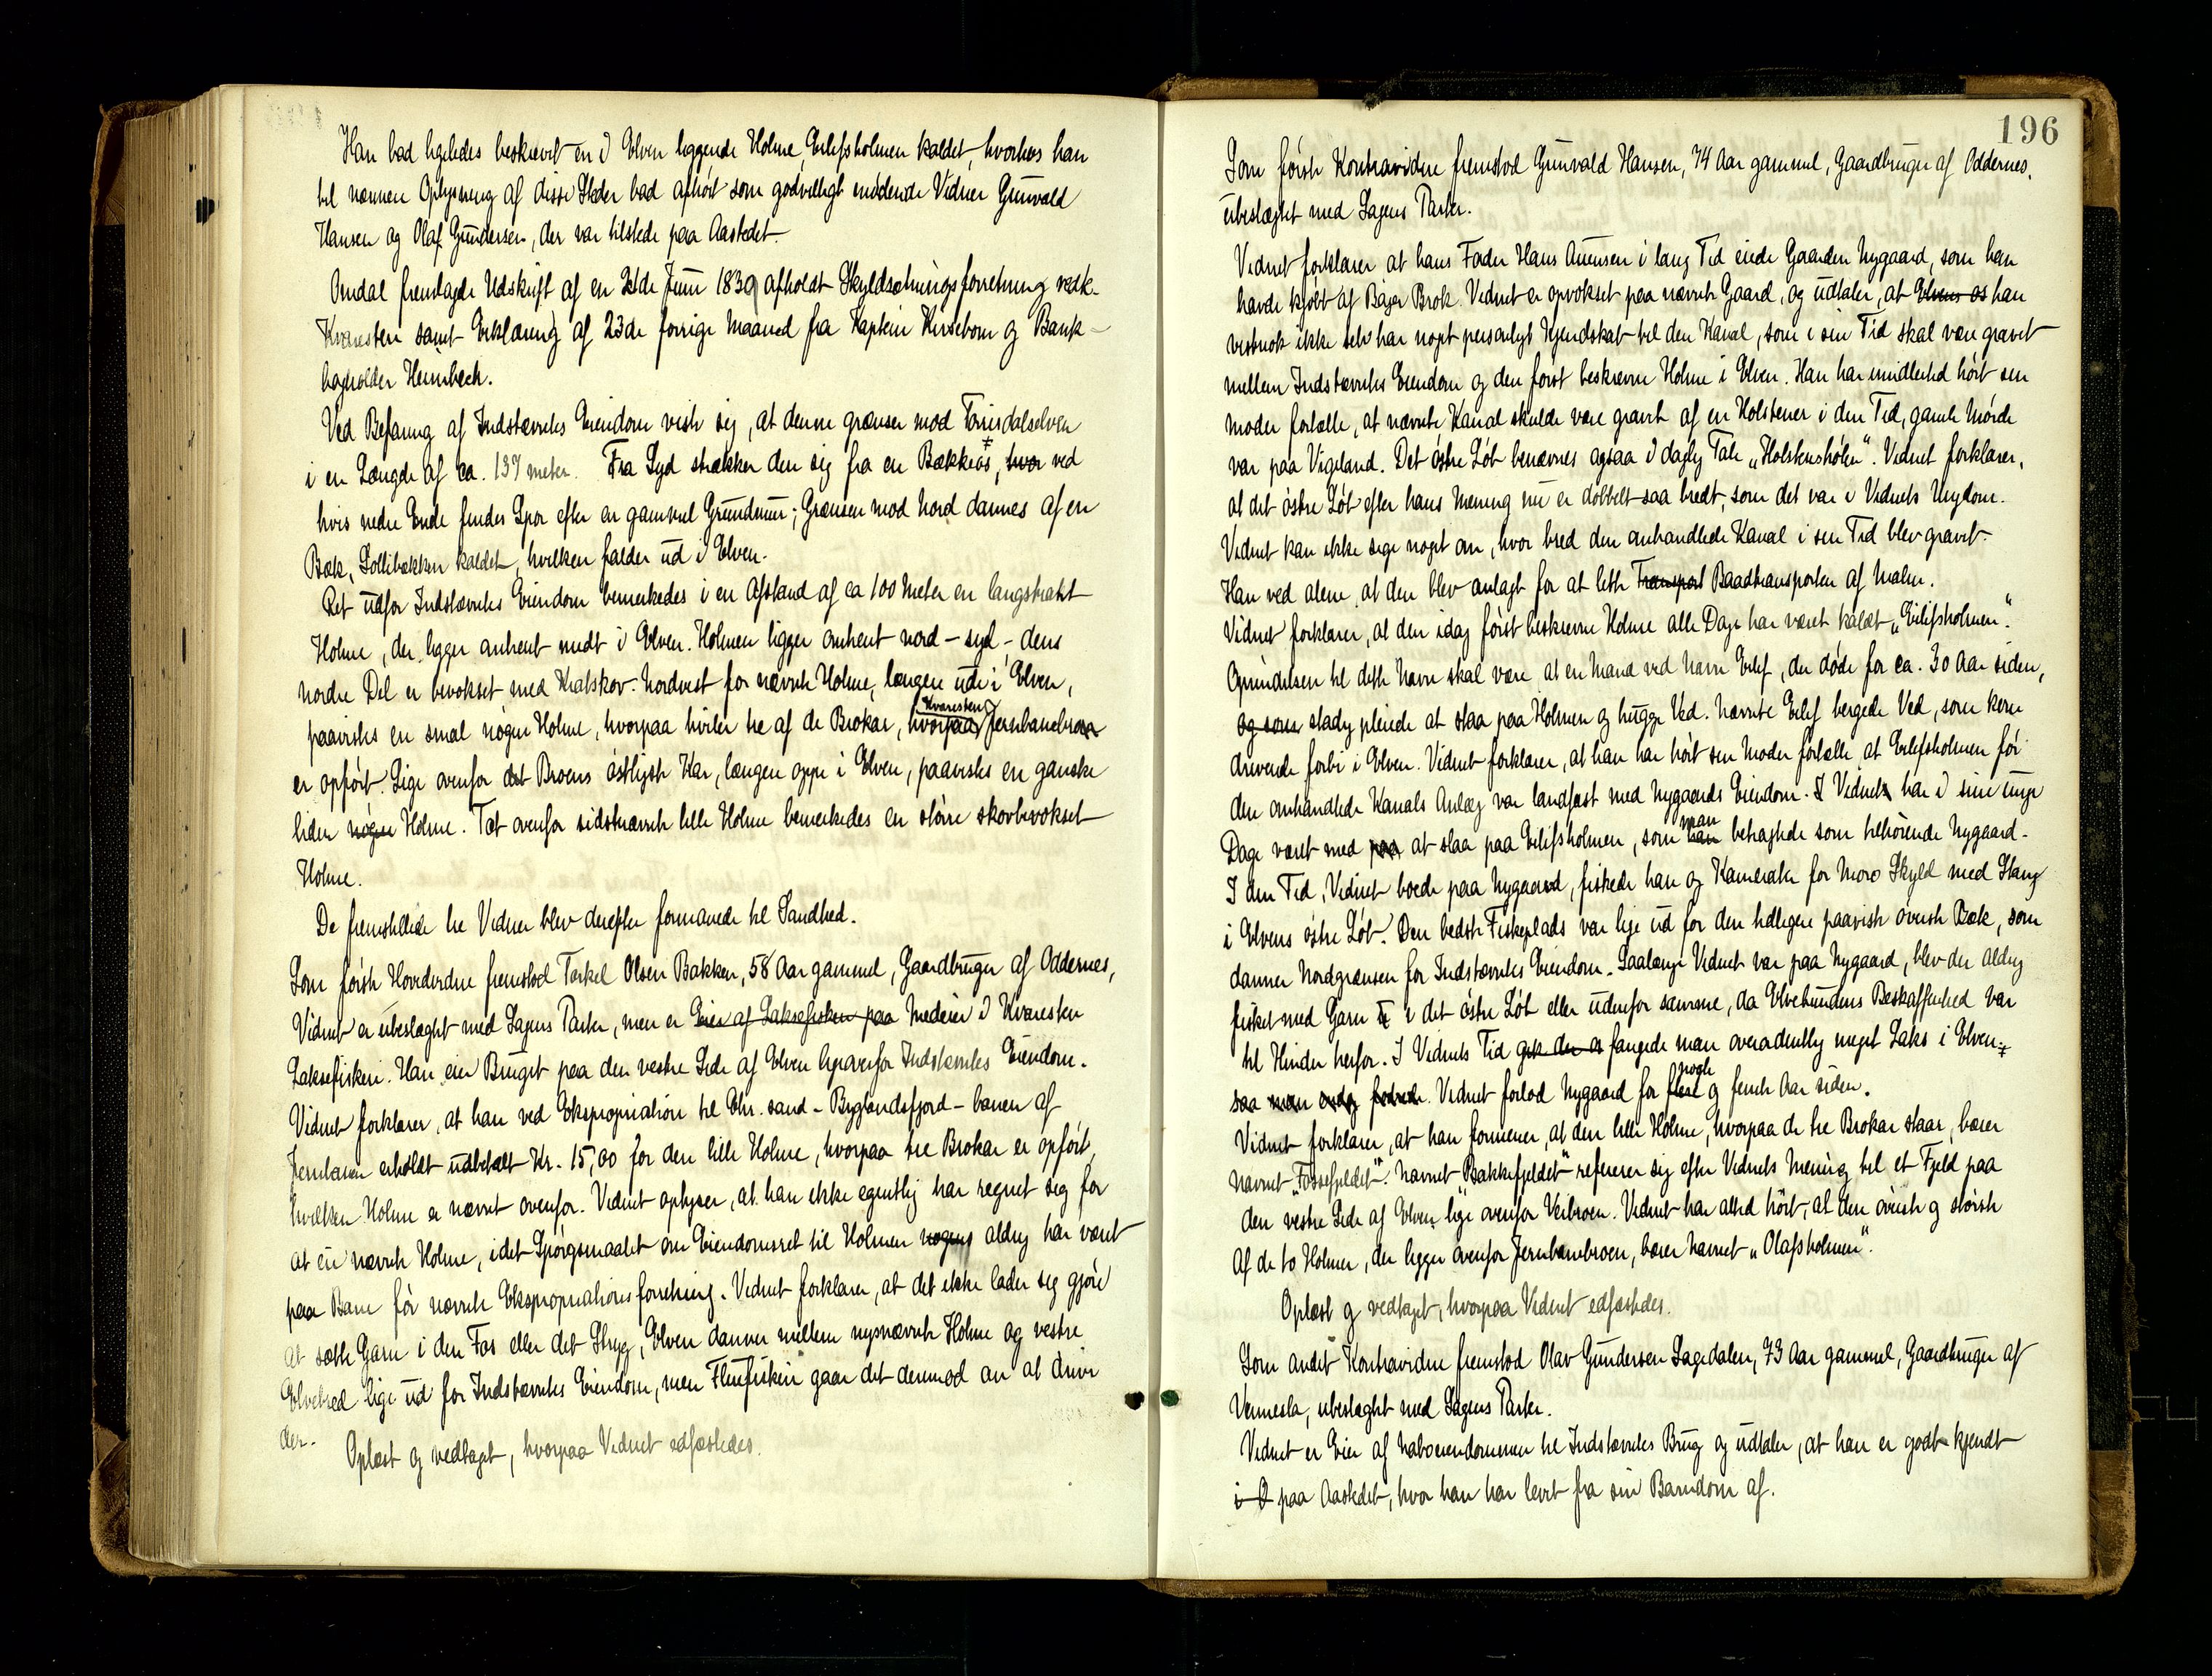 Han bad ligeledes beskrevet en i Elven liggende Holme, Eilifsholmen kaldet, hvorhos han
til nærmere Oplysning af disse Steder bad afhørt som godvilligt mødende Vidner Gunvald
Hansen og Olaf Gundersen, der var tilstede paa Aastedet.
Omdal fremlagde Udskrift af en 21de Juni 1839 afholdt Skyldsætningsforretning vedk.
Kvaresten samt Erklæring af 23de forrige Maaned fra Kaptein Kirsebom og Bank-
bogholder Heimbeck.
Ved Befaring af Indstævntes Eiendom viste sig, at denne grænser mod Torrisdalselven
i en Længde af ca. 137 meter. Fra Syd strækker den sig fra en Bækkeos, hvor ved
hvis nedre Ende findes Spor efter en gammel Grundmur; Grænsen mod Nord dannes af en
Bæk, Lollibækken kaldet, hvilken falder ud i Elven.
Ret udfor Indstævntes Eiendom bemerkedes i en Afstand af ca 100 Meter en langstrakt
Holme, der ligger omtrent midt i Elven. Holmen ligger omtrent nord - syd - dens
nordre Del er bevokset med Kratskov. Nordvest for nævnte Holme, længere ude i Elven,
paavistes en smal nøgen Holme, hvorpaa hviler tre af de Brokar, hvorpaa Kvarestens Jernbanebroen
er opført. Lige ovenfor det Broens østligste Kar, længere oppe i Elven, paavistes en ganske
liden nøgen Holme. Tæt ovenfor sidstnævnte lille Holme bemerkedes en større skovbevokset
Holme.
De fremstillede tre Vidner blev derefter formanede til Sandhed.
Som første Hovedvidne fremstod Torkel Olsen Bakken, 58 Aar gammel, Gaardbruger af Oddernes,
Vidnet er ubeslægtet med Sagens Parter, men er Eier af Laksefisken paa Medeier i Kvaresten
Laksefiskeri. Han eier Bruget paa den vestre Side af Elven ligeovenfor Indstævntes Eiendom.
Vidnet forklarer, at han ved Ekspropriation til Chr.sand - Byglandsfjord - banen af
Jernbanen erholdt udbetalt Kr. 15,00 for den lille Holme, hvorpaa tre Brokar er opført,
hvilken Holme er nævnt ovenfor. Vidnet oplyser, at han ikke egentlig har regnet sig for
at eie nævnte Holme, idet Spørgsmaalet om Eiendomsret til Holmen nogens aldrig har været
paa Bane før nævnte Ekspropriationsforretning. Vidnet forklarer, at det ikke lader sig gjøre
at sætte Garn i den Fos eller det Stryg, Elven danner mellem nysnævnte Holme og vestre
Elvebred lige ud for Indstævntes Eiendom, men Fluefiskeri gaar det derimod an at drive
der.
Oplæst og vedtaget, hvorpaa Vidnet edfæstedes.
196
Som første Kontravidne fremstod Gunvald Hansen, 74 Aar gammel, Gaardbruger af Oddernes,
ubeslægtet med Sagens Parter.
Vidnet forklarer at hans Fader Hans Auensen i lang Tid eiede Gaarden Nygaard, som han
havde kjøbt af Bager Brok. Vidnet er opvokset paa nævnte Gaard, og udtaler, at Elvens os han
vistnok ikke selv har noget personligt Kjendskab til den Kanal, som i sin Tid skal være gravet
mellem Indstævntes Eiendom og den først beskrevne Holme i Elven. Han har imidlertid hørt sin
Moder fortælle, at nævnte Kanal skulde være gravet af en Holstener i den Tid, gamle Mørch
var paa Vigeland. Det østre Løb benævnes ogsaa i daglig Tale "Holstenshølen". Vidnet forklarer,
at det østre Løb efter hans Mening nu er dobbelt saa bredt, som det var i Vidnets Ungdom.
Vidnet kan ikke sige noget om, hvor bred den omhandlede Kanal i sin Tid blev gravet.
Han ved alene, at den blev anlagt for at lette Transport Baadtransporten af Malm.
Vidnet forklarer, at den idag først beskrevne Holme alle Dage har været kaldt "Eilifsholmen".
Grundelsen til dette Navn skal være at en Mand ved Navn Eilif, der døde for ca. 30 Aar siden,
og som stadig pleiede at staa paa Holmen og hugge Ved. Nævnte Eilif bergede Ved, som kom
drivende forbi i Elven. Vidnet forklarer, at han har hørt sin Moder fortælle, at Eilifsholmen før
den omhandlede Kanals Anlæg var landfast med Nygaards Eiendom. I Vidnet har i sine unge
Dage været med paa at slaa paa Eilifsholmen, som han man betragtede som tilhørende Nygaard.
I den Tid, Vidnet boede paa Nygaard, fiskede han og Kamerater for Moro Skyld med Stang
i Elvens østre Løb. Den bedste Fiskeplads var lige ud for den tidligere paaviste øverste Bæk, som
danner Nordgrænsen for Indstævntes Eiendom. Saalænge Vidnet var paa Nygaard, blev der aldrig
fisket med Garn i det østre Løb eller udenfor samme, da Elvebundens Beskaffenhed var
til Hinder herfor. I Vidnets Tid gik der os fangede man overordentlig meget Laks i Elven,
saa man endog. Vidnet forlod Nygaard for flere nogle og femti Aar siden.
Vidnet forklarer, at han formener, at den lille Holme, hvorpaa de tre Brokar staar, bærer
Navnet "Fossefjeldet". Navnet "Bakkefjeldet" refererer sig efter Vidnets Mening til et Fjeld paa
den vestre Side af Elven lige ovenfor Veibroen. Vidnet har altid hørt, at den øverste og største
af de to Holmer, der ligger ovenfor Jernbanebroen, bærer Navnet "Olafsholmen".
Oplæst og vedtaget, hvorpaa Vidnet edfæstedes.
Som andet Kontravidne fremstod Olav Gundersen Lagedalen, 73 Aar gammel, Gaardbruger af
Vennesla, ubeslægtet med Sagens Parter.
Vidnet er Eier af Naboeiendommen til Indstævntes Brug og udtaler, at han er godt kjendt
i O paa Aastedet, hvor han har levet fra sin Barndom af.